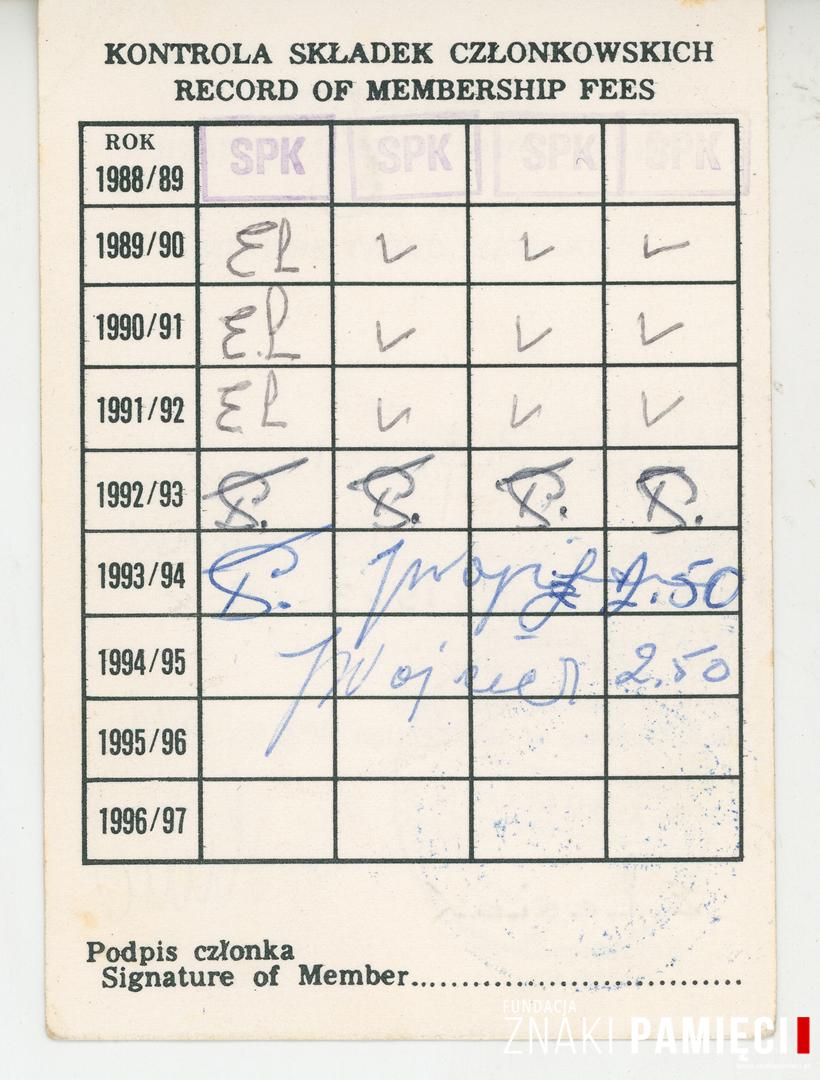 KONTROLA SKŁADEK CZŁONKOWSKICH
RECORD OF MEMBERSHIP FEES
ROK
1988/89 SPK SPK SPK SPK
1989/90
1990/91
1991/92
1992/93
1993/94 2.50
1994/95 2.50
1995/96
1996/97
Podpis członka
Signature of Member
FUNDACJA
ZNAKI PAMIĘCI